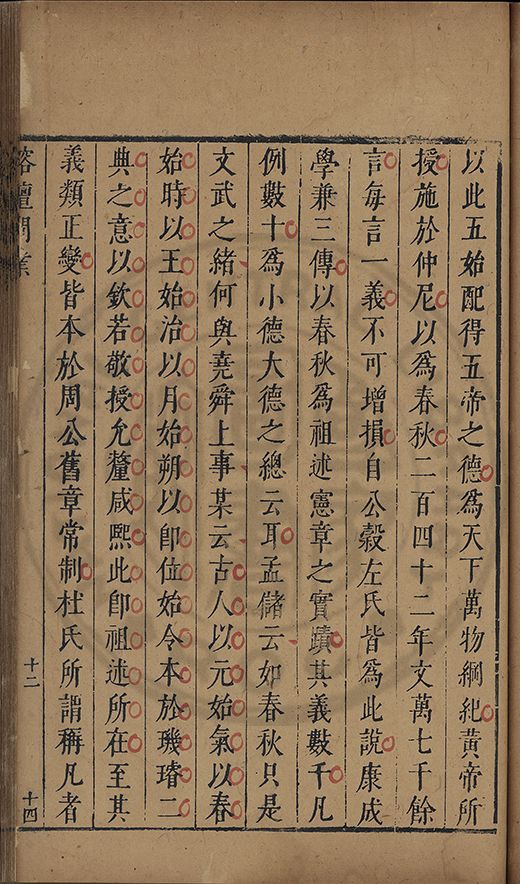 以此五始配得五帝之德爲天下萬物綱紀黃帝所
授施於仲尼以爲春秋二百四十二年文萬七千餘
言每言一義不可增損自公榖左氏皆爲此說康成
學兼三傳以春秋爲祖述憲章之實蹟其義數千凡
例數十爲小德大德之總云耳孟儲云如春秋只是
文武之緒何與堯舜上事某云古人以元始氣以春
始時以王始治以月始朔以卽位始令本於璣璿二
典之意以欽若敬授允釐咸熙此卽祖述所在至其
義類正變皆本於周公舊章常制杜氏所謂稱凡者
榕壇問業
十二
十四